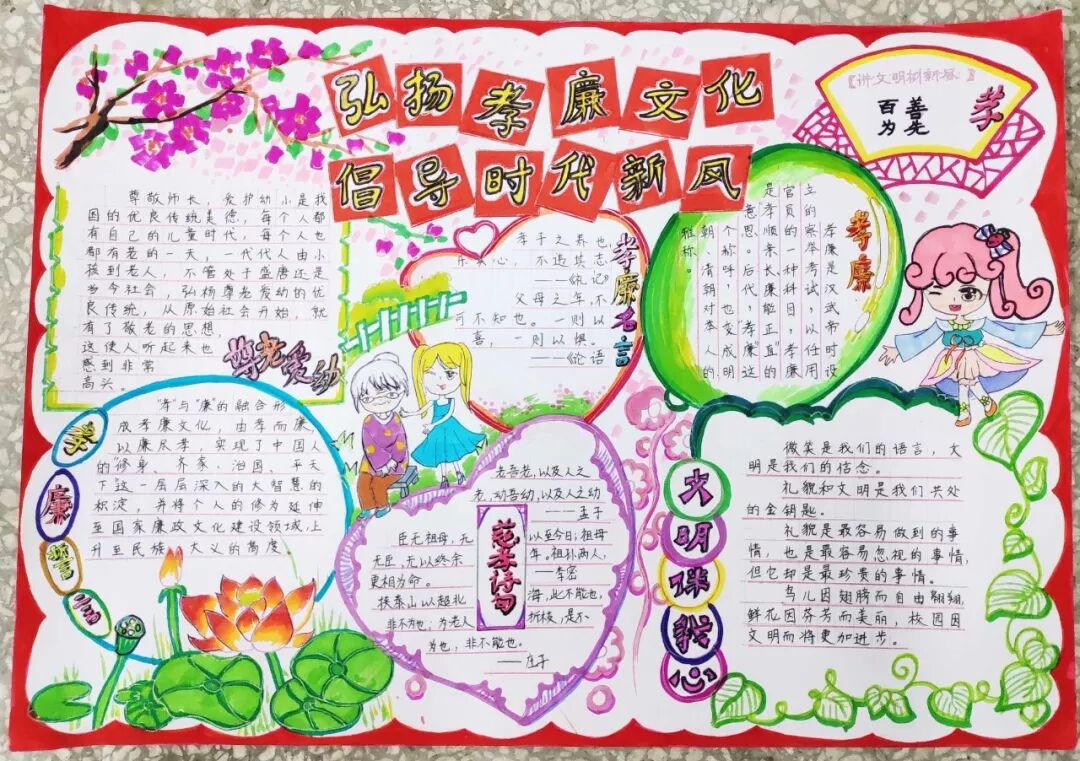 弘扬孝廉文化
倡导时代新风
《讲文明树新风》
百善孝
为先
尊敬师长，爱护幼小是我
国的优良传统美德，每个人都
有自己的儿童时代，每个人也
都有老的一天，一代代人由小
孩到老人，不管处于盛唐还是
当今社会，弘扬尊老爱幼的优
良传统，从原始社会开始，就
有了敬老的思想，
这使人听起来也
感到非常
高兴。
尊老爱幼
孝廉名言
孝子之养也，
乐其心，不违其志
——《礼记》
父母之年，不
可不知也。一则以
喜，一则以惧。
——《论语
孝廉
孝廉是汉武帝时设
立的察举考试，以任用
官员的一种科目，孝廉
是“孝顺亲长、廉能正直”的
意思。后代，“孝廉”这
个称呼，也变成明
朝、清朝对本人的
雅称。
孝廉
“孝”与“廉”的融合形
成孝廉文化，由孝而廉
以廉尽孝，实现了中国人
的“修身、齐家、治国、平天
下这一层层深入的大智慧的
积淀，并将个人的修为延伸
至国家廉政文化建设领域，上
升至民族大义的高度
慈孝诗句
老吾老，以及人之
老，幼吾幼，以及人之幼
——孟子
臣无祖母，无以至今日；祖母
无臣，无以终余年。祖孙两人，
更相为命。——李密
扶泰山以超北海，此不能也，
非不为也；为老人折枝，是不
为也，非不能也。
——庄子
文明伴我心
微笑是我们的语言，文
明是我们的信念。
礼貌和文明是我们共处
的金钥匙。
礼貌是最容易做到的事
情，也是最容易忽视的事情，
但它却是最珍贵的事情。
鸟儿因翅膀而自由翱翔，
鲜花因芬芳而美丽，校园因
文明而将更加进步。